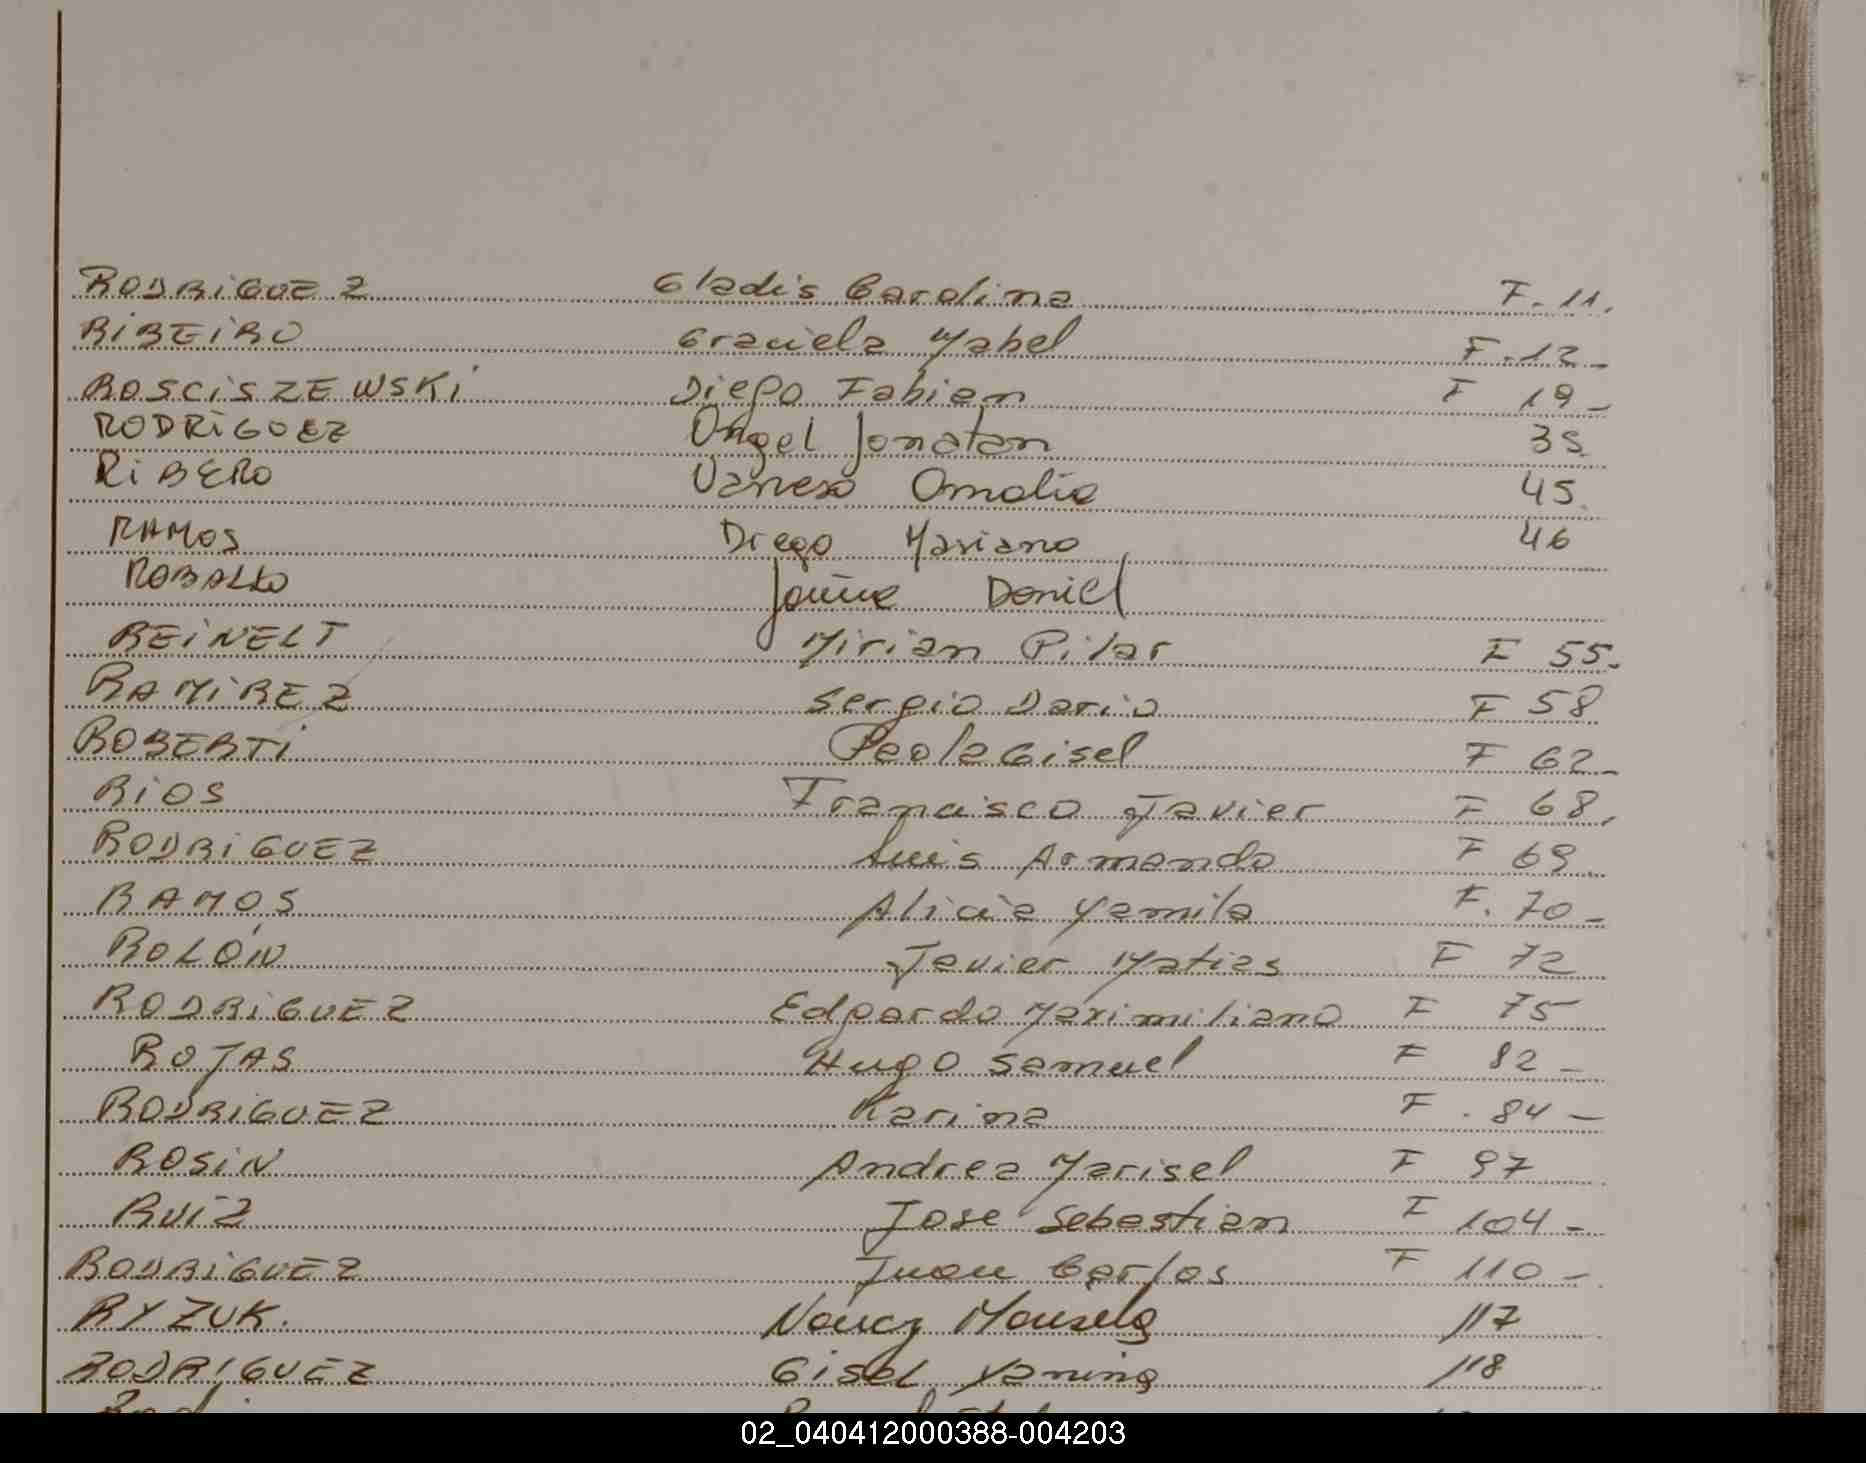 RODRIGUEZ Gladis Carolina F. 11.
RIBEIRO Graciela Mabel F. 12 -
ROSCISZEWSKI Diego Fabian F 19 -
RODRIGUEZ Angel Jonatan 35
RIBERO Vanesa Amalia 45
RAMOS Diego Mariano 46
ROBALLO Daniel
REINELT Mirian Pilar F 55.
RAMIREZ Sergio Dario F 58
ROBERTI Paola Gisel F 62 -
RIOS Francisco Javier F 68.
RODRIGUEZ Luis Armando F 69
RAMOS Alicia Yamila F. 70 -
ROLÓN Javier Matias F 72
RODRIGUEZ Edgardo Maximiliano F 75
ROJAS Hugo Samuel F 82 -
RODRIGUEZ Karina F . 84 -
ROSIN Andrea Marisel F 97
RUIZ Jose Sebastian F 104 -
RODRIGUEZ Juan Carlos F 110 -
RYZUK. Nancy 117
RODRIGUEZ Gisel Yanina 118
02_040412000388-004203